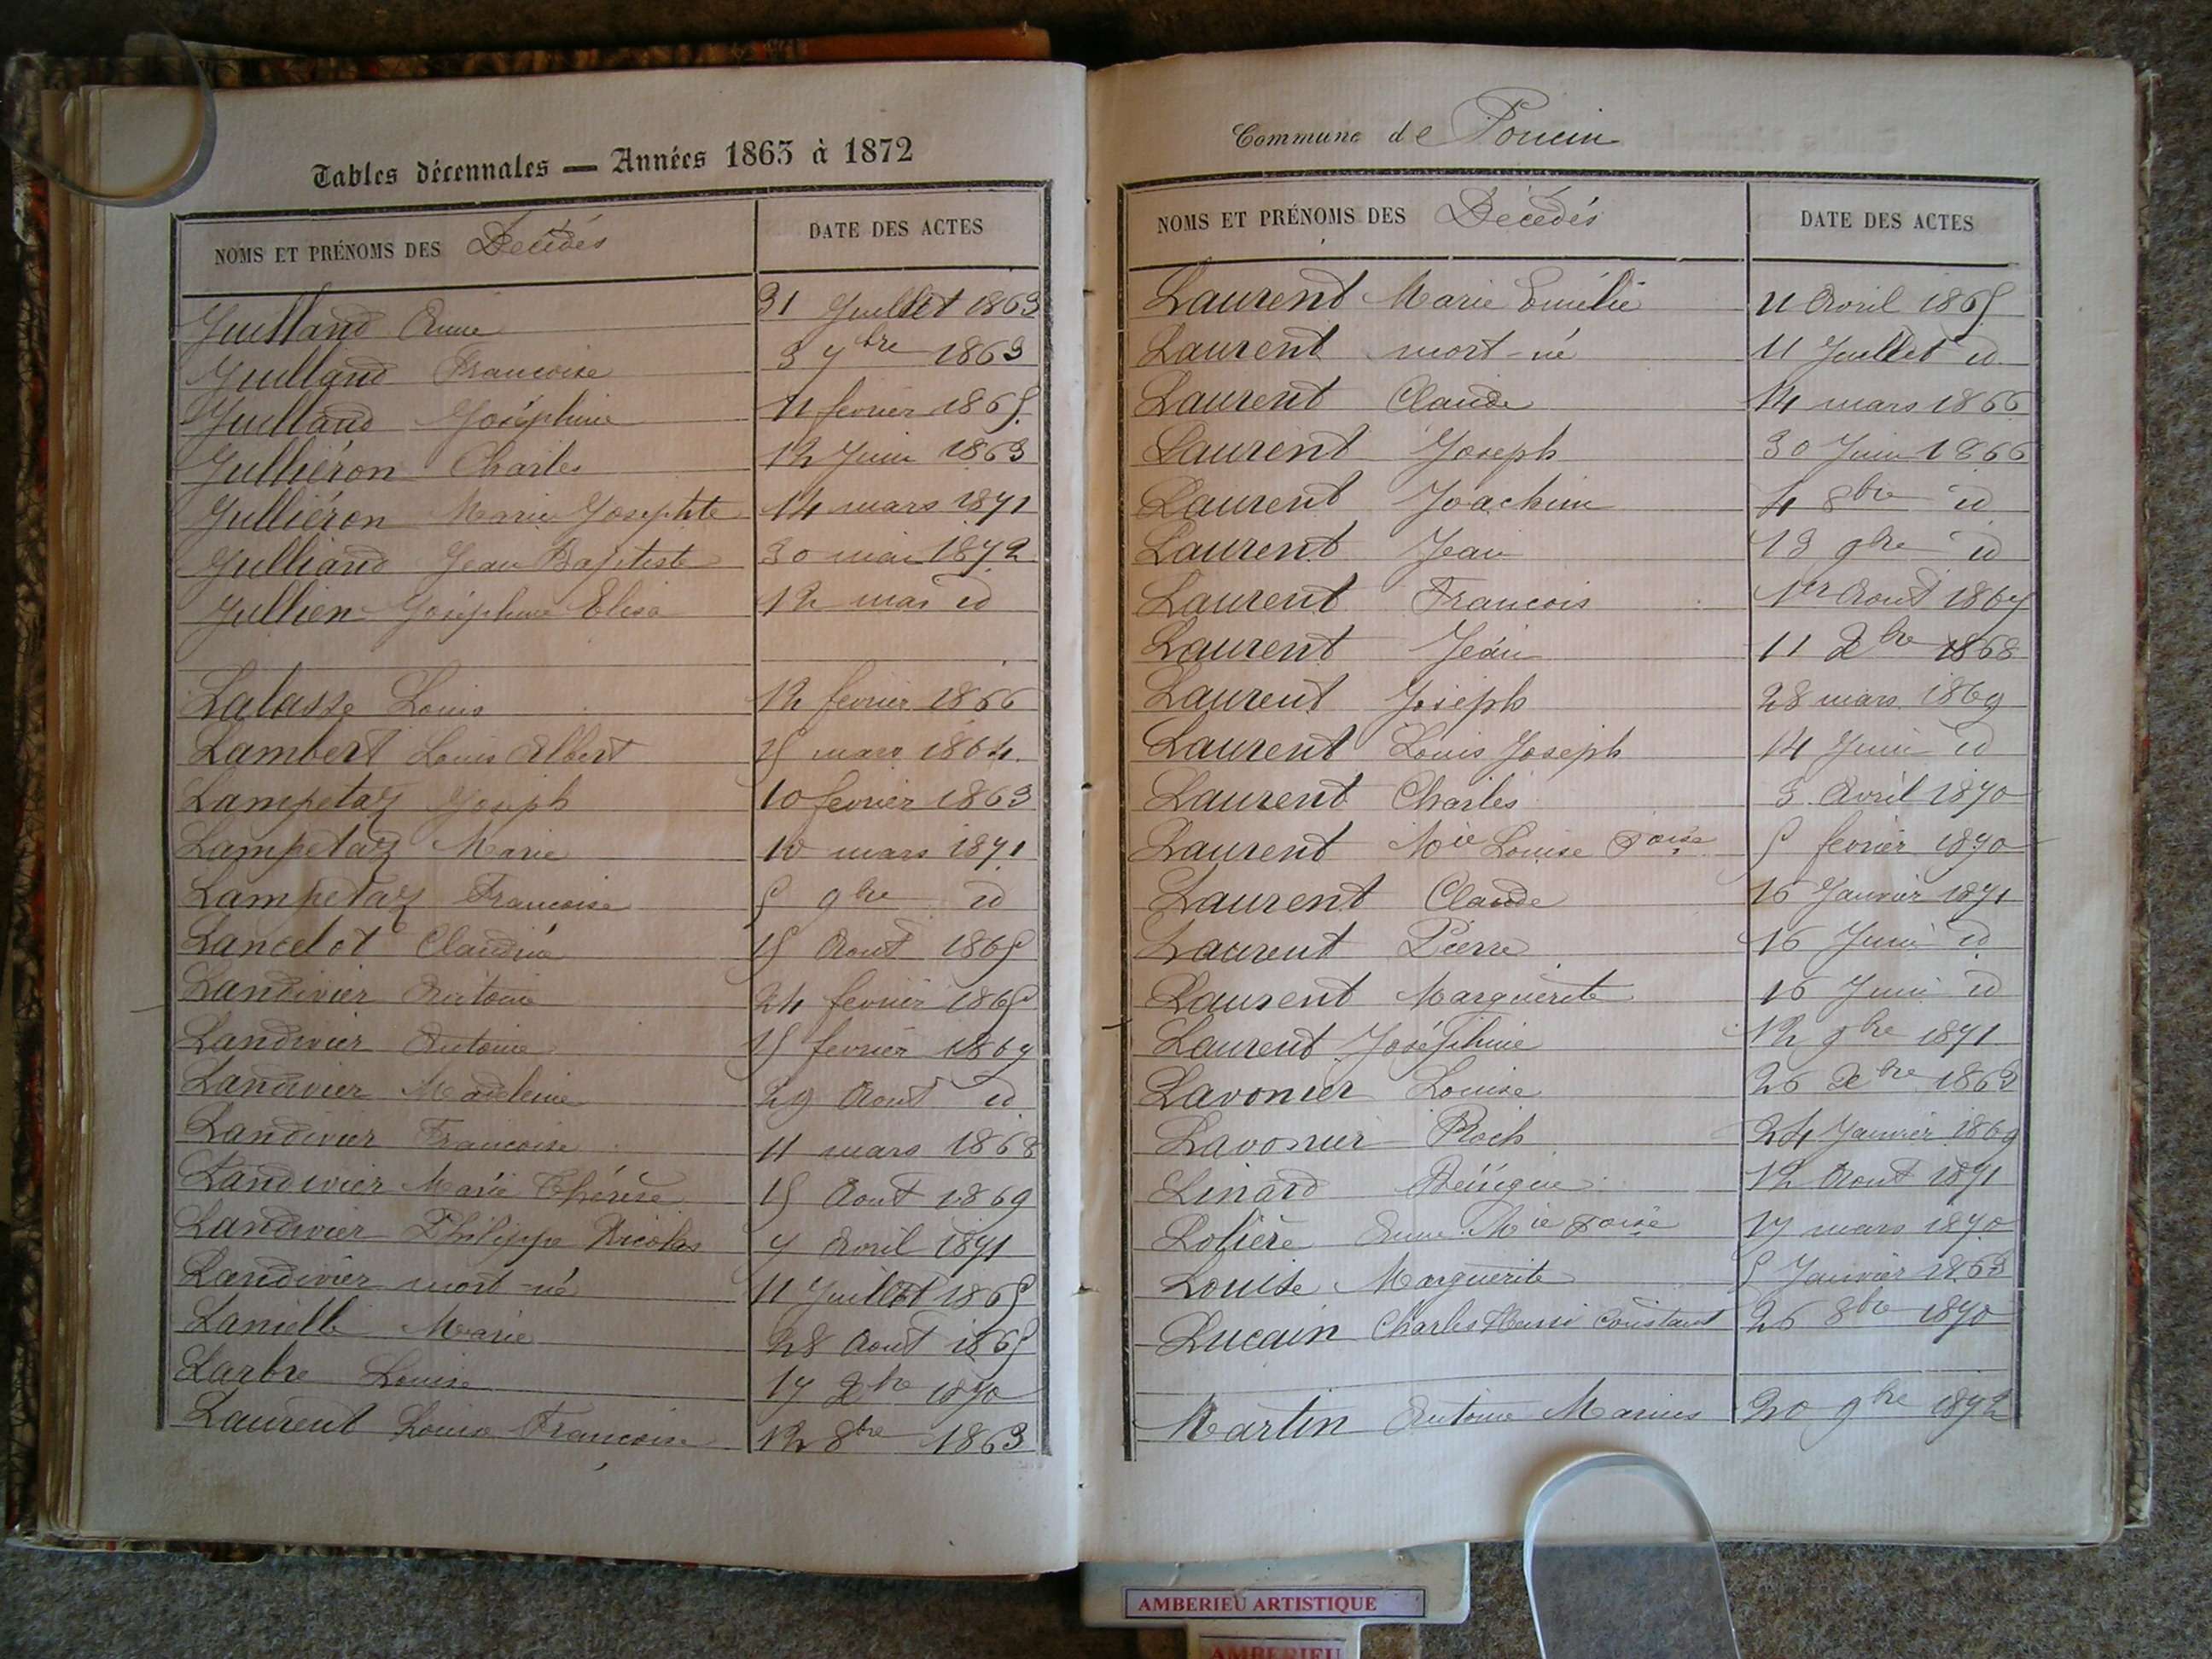 Tables décennales — Années 1863 à 1872
NOMS ET PRÉNOMS DES Décédés DATE DES ACTES
Juilland Anne 31 Juillet 1863
Juilland Francoise 3 7bre 1863
Juilland Joséphine 11 fevrier 1865
Julliéron Charles 12 Juin 1863
Julliéron Marie Josephte 14 mars 1871
Julliand Jean Baptiste 30 mai 1872
Jullien Joséphine Elisa 12 mai id
Lalasse Louis 12 fevrier 1866
Lambert Louis Albert 15 mars 1864
Lampetaz Joseph 10 fevrier 1863
Lampetaz Marie 10 mars 1871
Lampetaz Francoise 5 9bre id
Lancelot Claudine 15 Aout 1865
Landivier Antoine 24 fevrier 1865
Landivier Antoine 15 fevrier 1867
Landivier Madeleine 29 Aout id
Landivier Francoise 11 mars 1868
Landivier Marie Thérèse 15 Aout 1869
Landivier Philippe Nicolas 7 Avril 1871
Landivier mort-né 11 Juillet 1865
Lanielle Marie 28 Aout 1865
Larbre Louise 17 Xbre 1870
Laurent Louise Françoise 12 8bre 1863
Commune de Poncin
NOMS ET PRÉNOMS DES Décédés DATE DES ACTES
Laurent Marie Emélie 11 Avril 1865
Laurent mort-né 11 Juillet id
Laurent Claude 14 mars 1866
Laurent Joseph 30 Juin 1866
Laurent Joachim 4 8bre id
Laurent Jean 13 9bre id
Laurent Francois 1er Aout 1867
Laurent Jean 11 Xbre 1868
Laurent Joseph 28 mars 1869
Laurent Louis Joseph 14 Juin id
Laurent Charles 3 Avril 1870
Laurent Mie Louise Foise 5 fevrier 1870
Laurent Claude 16 Janvier 1871
Laurent Pierre 16 Juin id
Laurent Marguerite 16 Juin id
Laurent Joséphine 12 9bre 1871
Lavonier Louise 26 Xbre 1863
Lavonier Roch 24 Janvier 1869
Linard 12 Aout 1871
Lolière Anne Mie Foise 17 mars 1870
Louise Marguerite 5 Janvier 1863
Lucain Charles Henri Constant 26 8bre 1870
Martin Antoine Marius 20 9bre 1872
AMBERIEU ARTISTIQUE
AMBERIEU